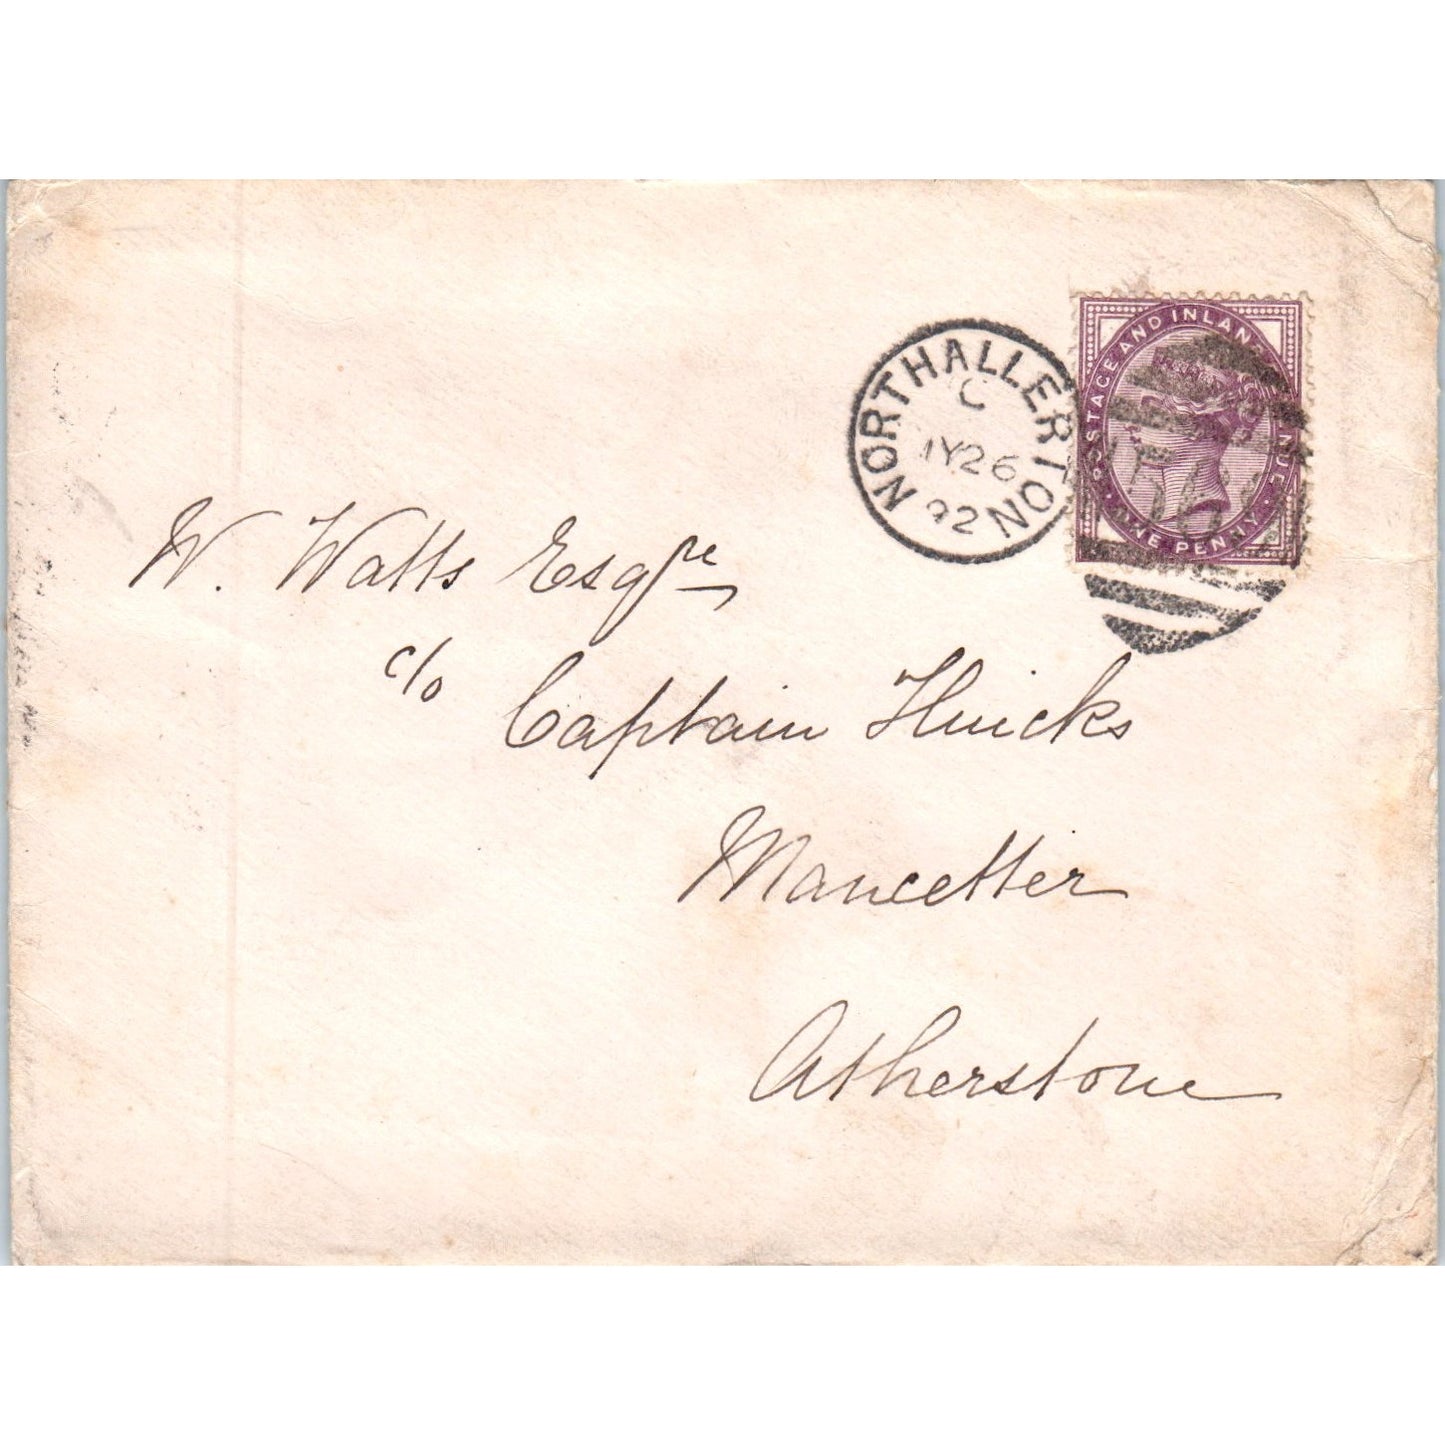 NORTHALLERTON
C
MY 26
92
POSTAGE AND INLAND REVENUE
ONE PENNY
W. Watts Esqre
c/o
Captain Huicks
Mancetter
Atherstone